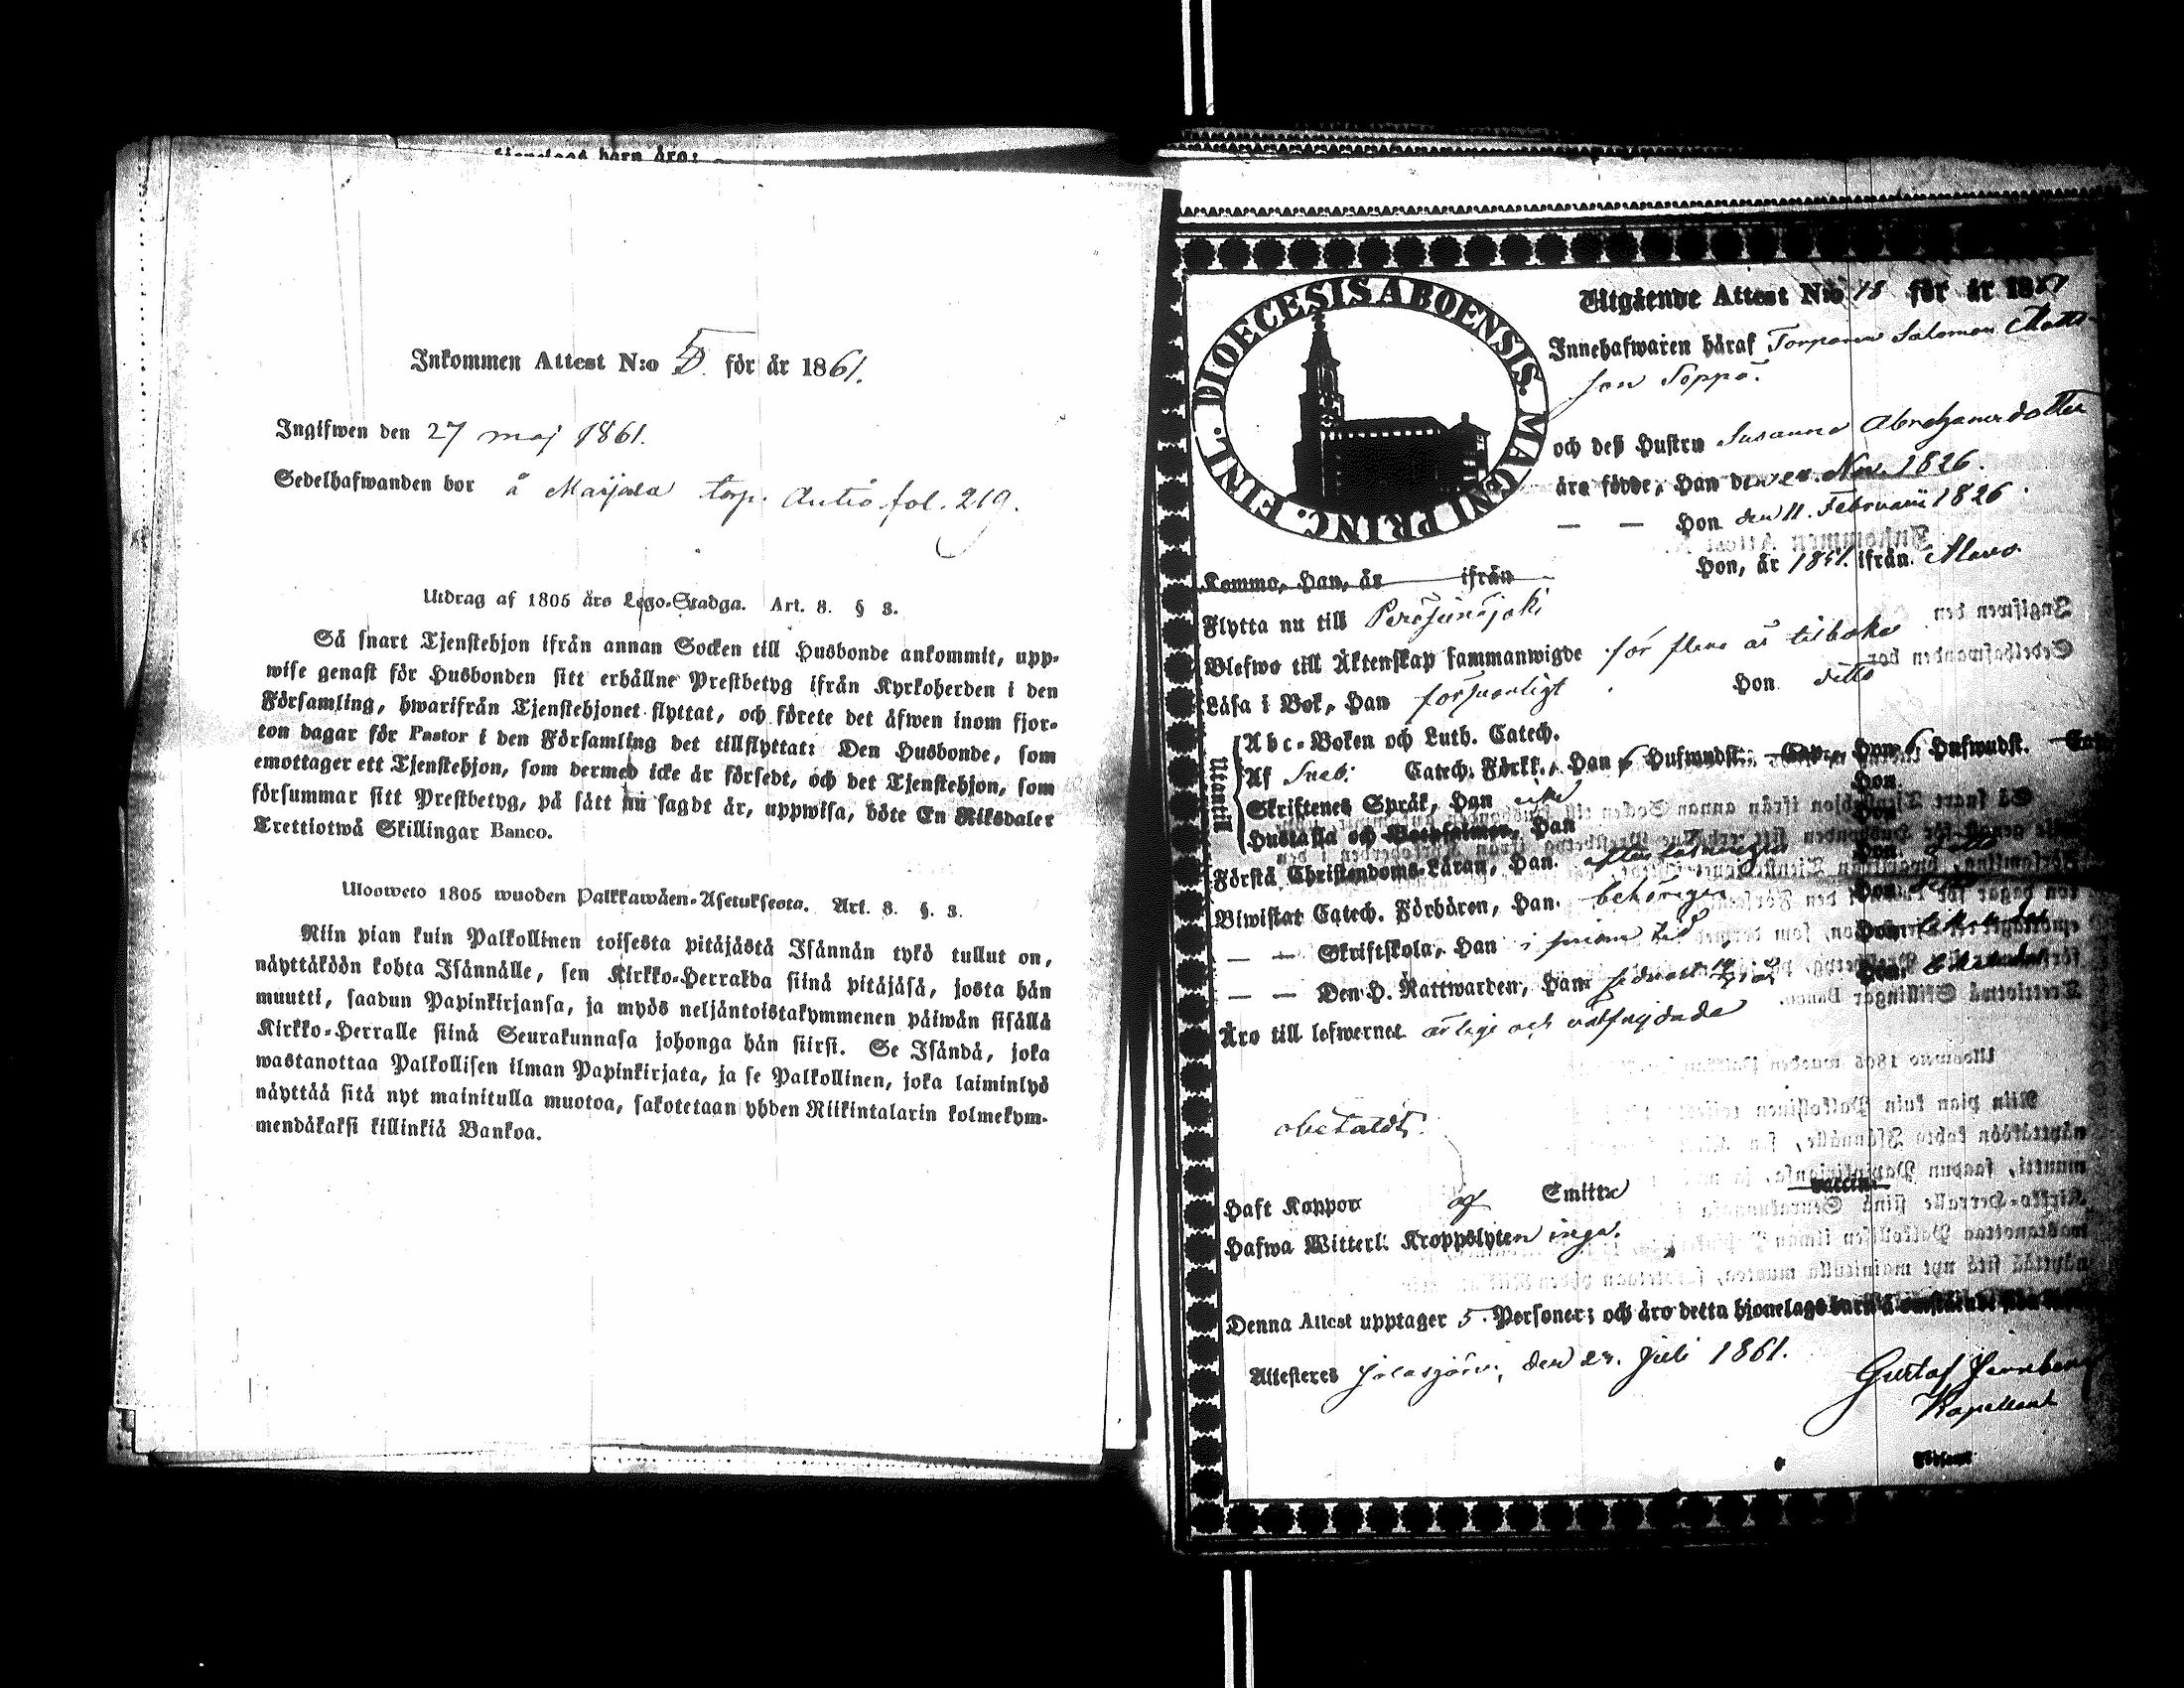 Inkommen Attest N:o 5 för år 1861.
Ingifwen den 27 maj 1861.
Sedelhafwanden bor å Marjala torp. Antio fol. 219.
Utdrag af 1805 års Lego-Stadga. Art. 8. § 3.
Så snart Tjenstehjon ifrån annan Socken till Husbonde ankommit, upp-
wise genast för Husbonden sitt erhållne Prestbetyg ifrån Kyrkoherden i den
Församling, hwarifrån Tjenstehjonet flyttat, och förete det äfwen inom fjor-
ton dagar för Pastor i den Församling det tillflyttat: Den Husbonde, som
emottager ett Tjenstehjon, som dermed icke är försedt, och det Tjenstehjon, som
försummar sitt Prestbetyg, på sätt nu sagdt är, uppwisa, böte En Riksdaler
Trettiotwå Skillingar Banco.
Ulosweto 1805 wuoden Palkkawäen-Asetuksesta. Art. 8. §. 3.
Niin pian kuin Palkollinen toisesta pitäjästä Isännän tykö tullut on,
näyttäköön kohta Isännälle, sen Kirkko-Herralda siinä pitäjäsä, josta hän
muutti, saadun Papinkirjansa, ja myös neljäntoistakymmenen päiwän sisällä
Kirkko-Herralle siinä Seurakunnasa johonga hän siirsi. Se Isändä, joka
wastanottaa Palkollisen ilman Papinkirjata, ja se Palkollinen, joka laiminlyö
näyttää sitä nyt mainitulla muotoa, sakotetaan yhden Riikintalarin kolmekym-
mendäkaksi killinkiä Bankoa.
DIOECESIS ABOENSIS. MAGNI PRINC. FINL.
Utgående Attest N:o 18 för år 1861
Innehafwaren häraf Torparen Salomon Matts-
son Soppa.
och deß Hustru Susanna Abrahamsdotter
äro födde, Han den Nov. 1826.
— — Hon den 11. Februarii 1826.
Kommo, Han, år ifrån Hon, år ifrån Alavo.
Flytta nu till Peräseinäjoki
Blefwo till Äktenskap sammanwigde för flera år tilbaka
Läsa i Bok, Han försvarligt Hon ditto
Utantill
Abc-Boken och Luth. Catech.
Af Sveb: Catech. Förkl., Han 6 Hufwudst. Cap., Hon 6 Hufwudst.
Skriftenes Språk, Han Hon
Hustafla och Han Hon
Förstå Christendoms-Läran, Han. Hon. ditto
Biwistat Catech. Förhören, Han. behörigen Hon
— — Skriftskola, Han i sinom tid Hon
— — Den H. Nattwarden, Han sednast Hon
Äro till lefwernet ärlige och välfrejdade
obetaldt.
Haft Koppor af Smitta vaccin
Hafwa Witterl. Kroppslyten inga.
Denna Attest upptager 5 Personer; och äro detta hjonelags barn å
Attesteres Jalasjärvi, den Juli 1861.
Gustaf
Kapellant